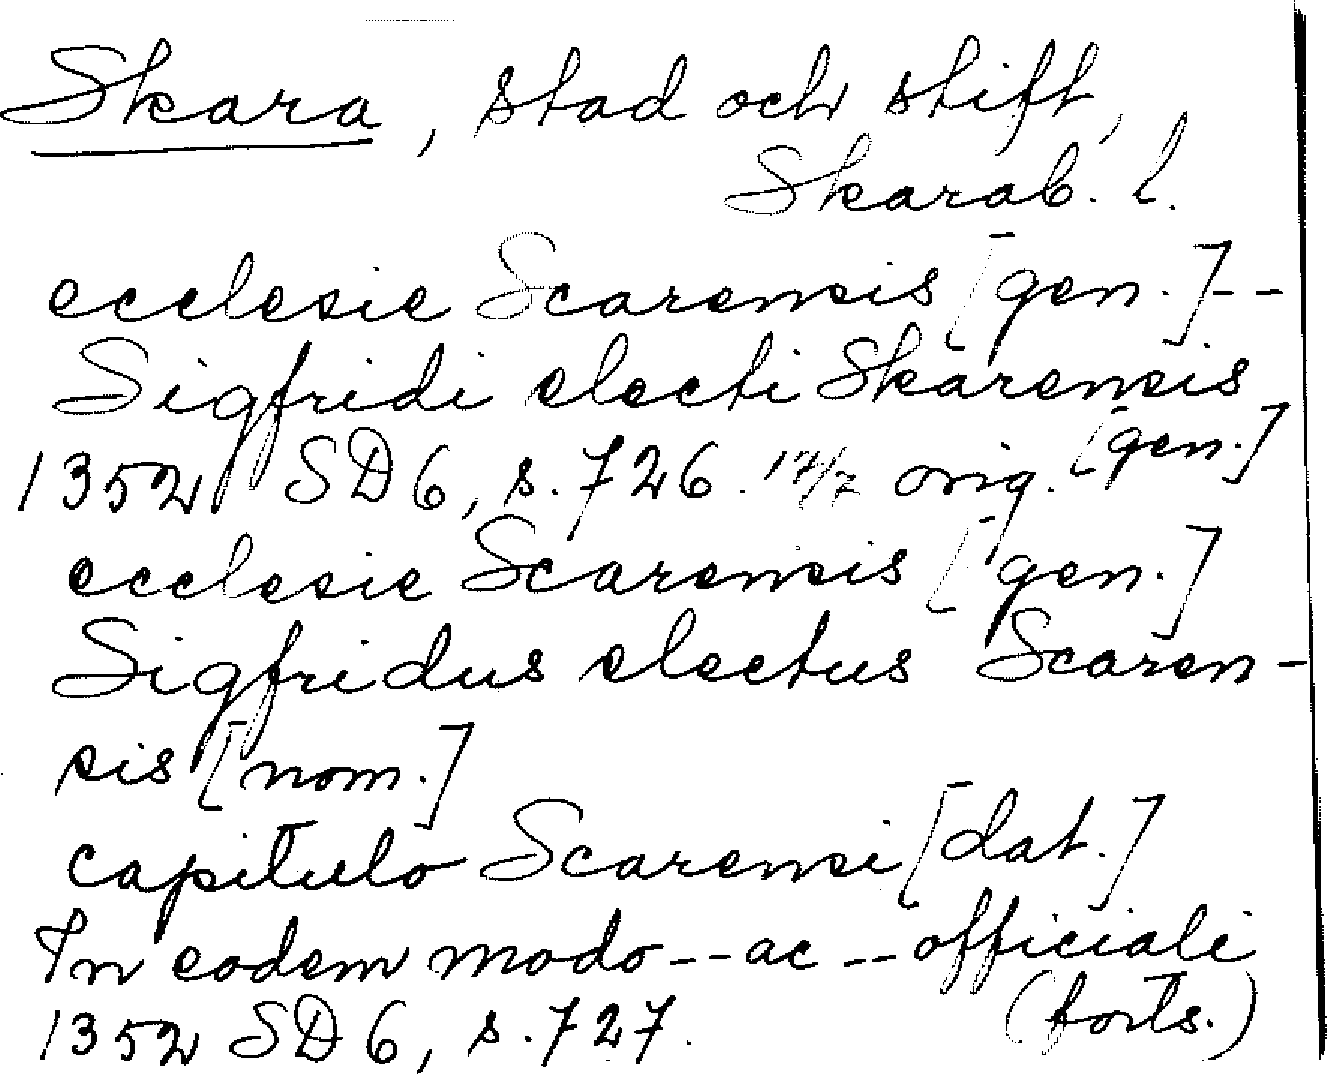 Skara, stad och stift,
Skarab. l.
ecclesie Scarensis [gen.]--
Sigfridi electi Skarensis
[gen.]
1352 SD 6, s. 726. 17/7 orig.
ecclesie Scarensis [gen.]
Sigfridus electus Scaren-
sis [nom.]
capitulo Scarensi [dat.]
In eodem modo -- ac -- officiali
1352 SD 6, s. 727. (forts.)